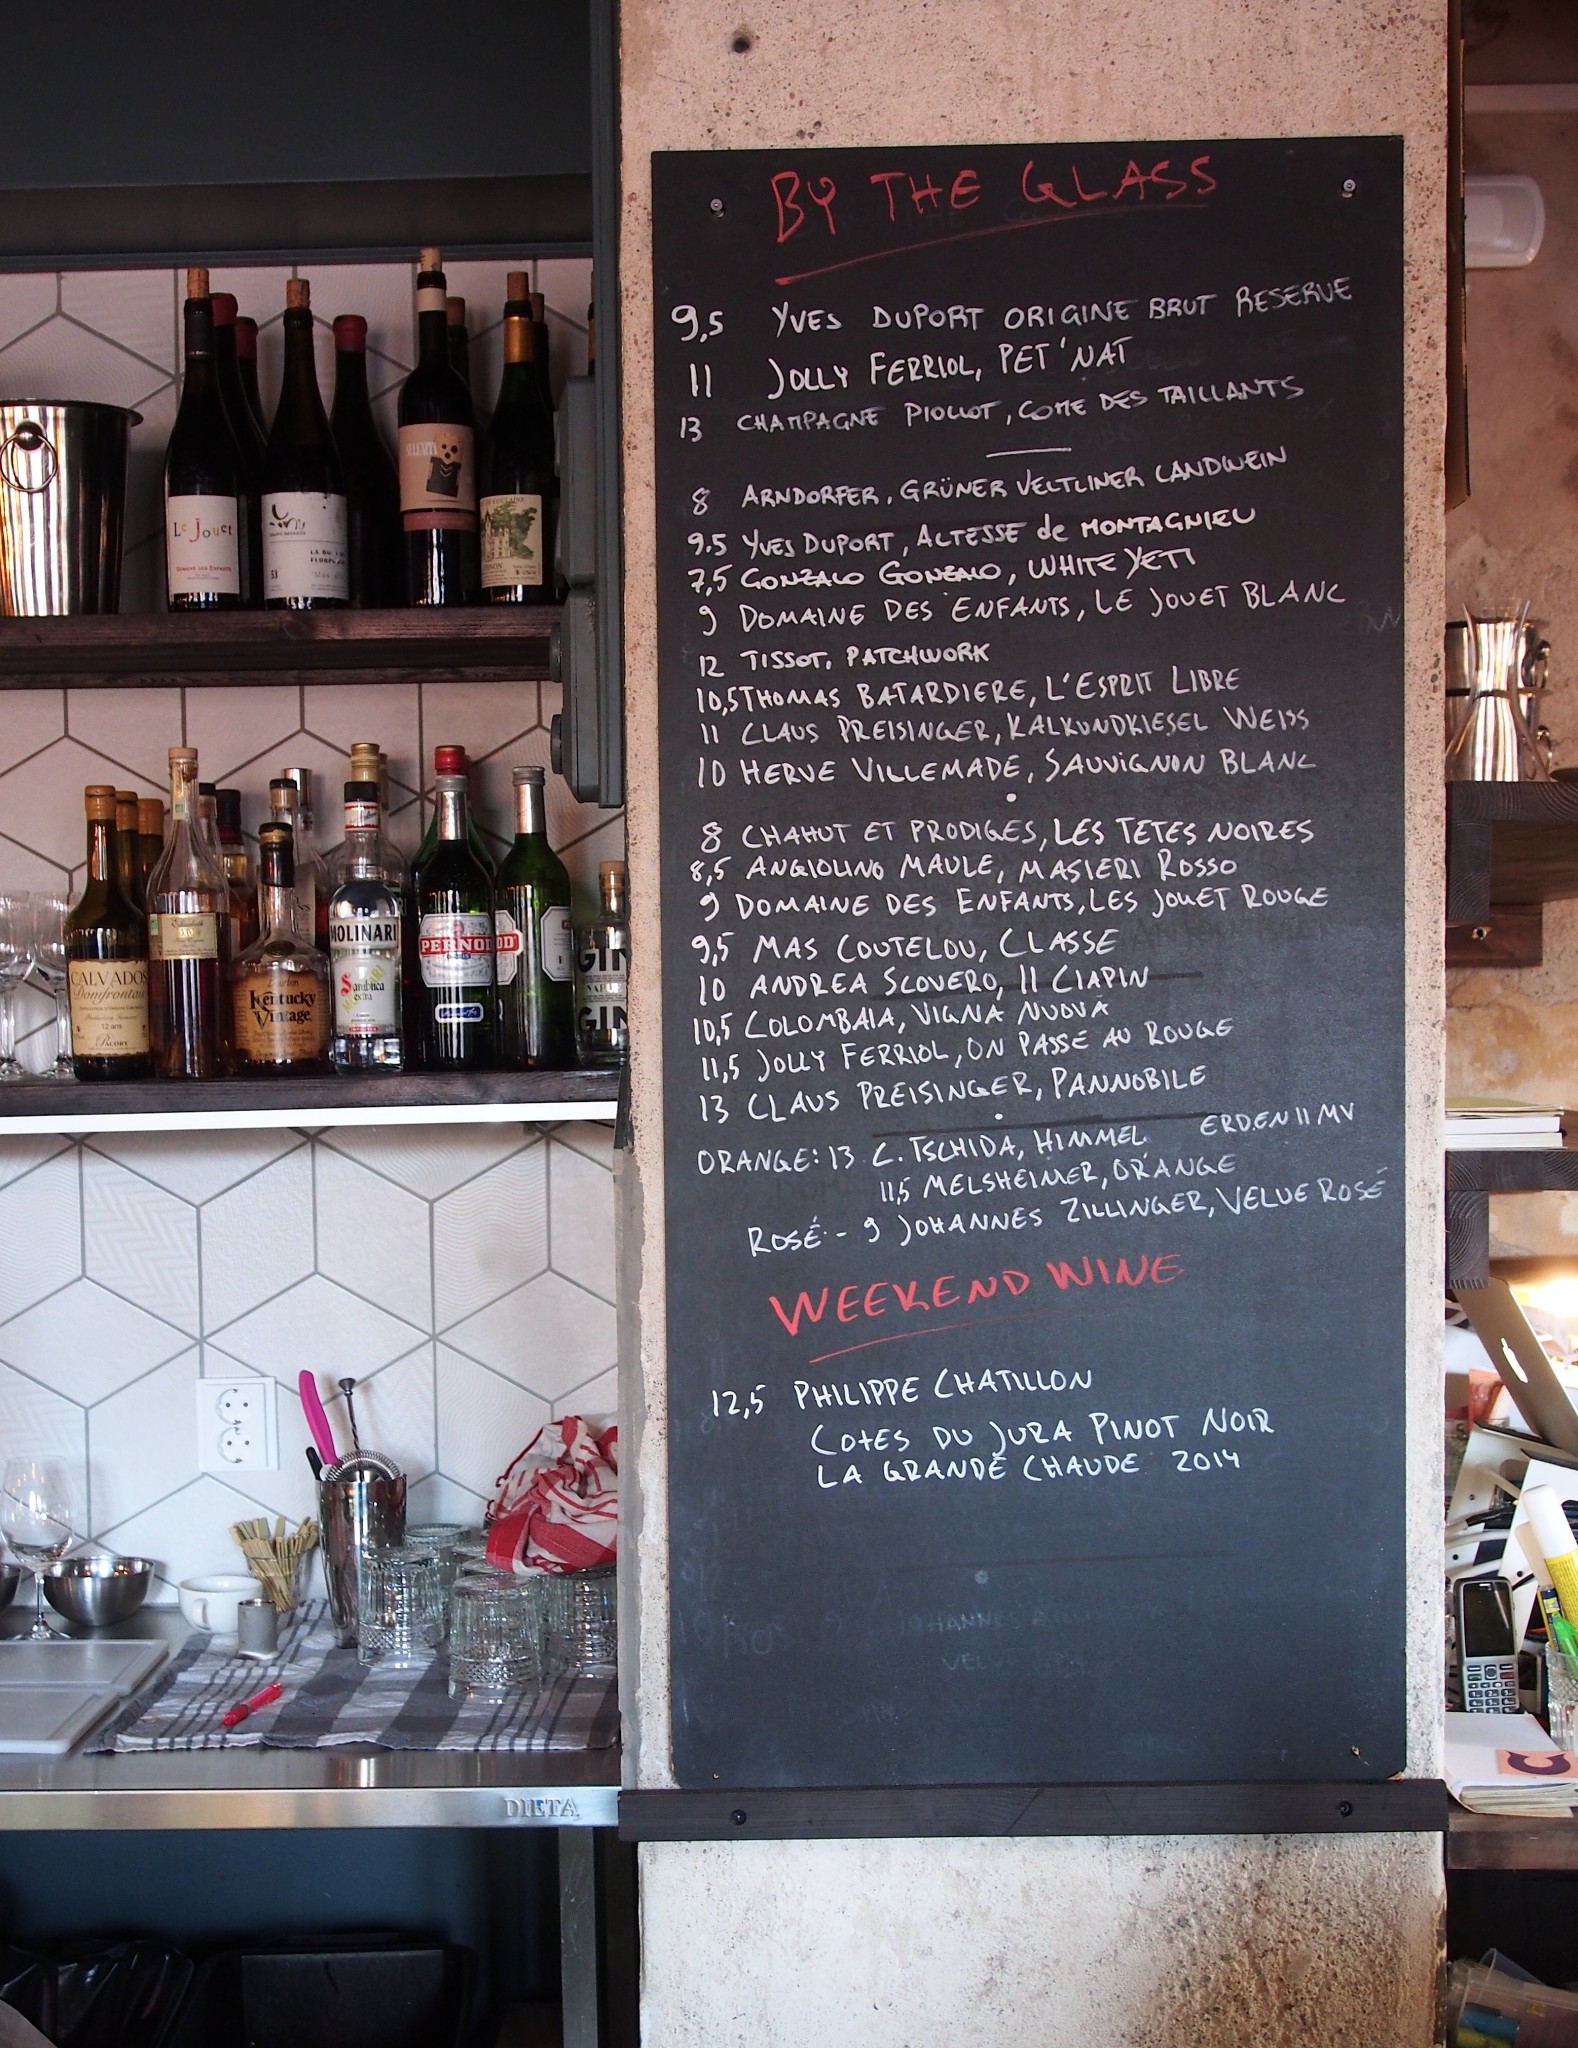 BY THE GLASS
9,5 YVES DUPORT ORIGINE BRUT RESERVE
11 JOLLY FERRIOL, PET'NAT
13 CHAMPAGNE PIOLLOT, COME DES TAILLANTS
8 ARNDORFER, GRÜNER VELTLINER LANDWEIN
9.5 YVES DUPORT, ALTESSE de MONTAGNIEU
7,5 GONZALO GONZALO, WHITE YETI
9 DOMAINE DES ENFANTS, LE JOUET BLANC
12 TISSOT, PATCHWORK
10,5 THOMAS BATARDIERE, L'ESPRIT LIBRE
11 CLAUS PREISINGER, KALKUNDKIESEL WEISS
10 HERVE VILLEMADE, SAUVIGNON BLANC
8 CHAHUT ET PRODIGES, LES TETES NOIRES
8,5 ANGIOLINO MAULE, MASIERI ROSSO
9 DOMAINE DES ENFANTS, LES JOUET ROUGE
9,5 MAS COUTELOU, CLASSE
10 ANDREA SCOVERO, Il CIAPIN
10,5 COLOMBAIA, VIGNA NUOVA
11,5 JOLLY FERRIOL, ON PASSE AU ROUGE
13 CLAUS PREISINGER, PANNOBILE
ORANGE: 13 C. TSCHIDA, HIMMEL ERDEN II MV
11,5 MELSHEIMER, ORANGE
ROSÉ - 9 JOHANNES ZILLINGER, VELUE ROSÉ
WEEKEND WINE
12,5 PHILIPPE CHATILLON
COTES DU JURA PINOT NOIR
LA GRANDE CHAUDE 2014
Le Jouet
DOMAINE DES ENFANTS
53
CALVADOS
Domfrontais
12 ans
PACORY
XO
Bourbon
Kentucky
Vintage
MOLINARI
Sambuca
extra
PERNOD
PARIS
GIN
GIN
DIETA